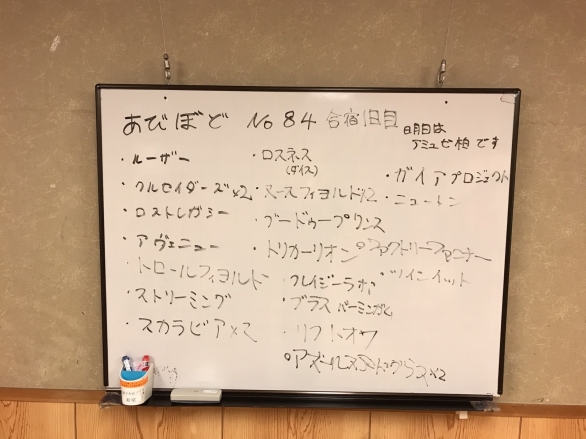 あびぼど No 84 合宿1日目
明日は
アミュゼ柏です
・ルーザー
・クルセイダーズ×2
・ロストレガシー
・アヴェニュー
・トロールフィヨルド
・ストリーミング
・スカラビア×2
・ロスネス
(ダイス)
・ヌースフィヨルド×2
・ブードゥープリンス
・トリカーリオン
・クレイジーラボ
・ブラス バーミンガム
・リフトオフ
・ガイアプロジェクト
・ニュートン
・ファクトリーファナー
・ツインイット